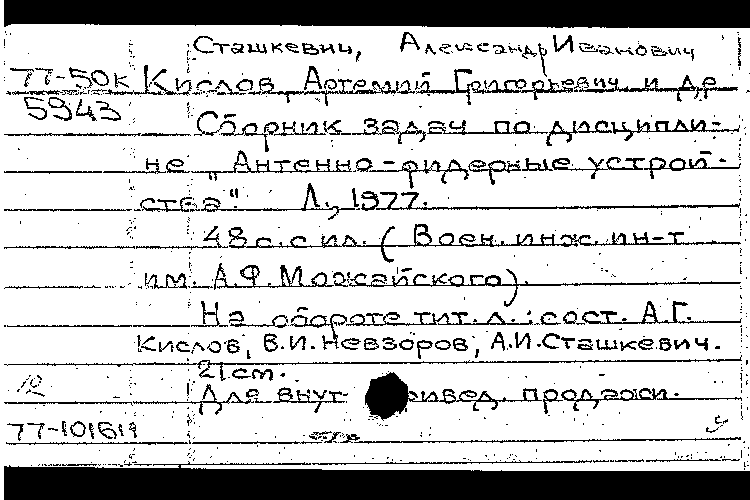 Сташкевич, Александр Иванович
77-50к Кислов, Артемий Григорьевич и др
5943
Сборник задач по дисципли-
не „Антенно-фидерные устрой-
ства". Л., 1977.
48 с. с ил. (Воен. инж. ин-т
им. А.Ф. Можайского).
На обороте тит. л.: сост. А.Г.
Кислов, В.И. Невзоров, А.И. Сташкевич.
21 см.
12
Для внут ривед. продажи.